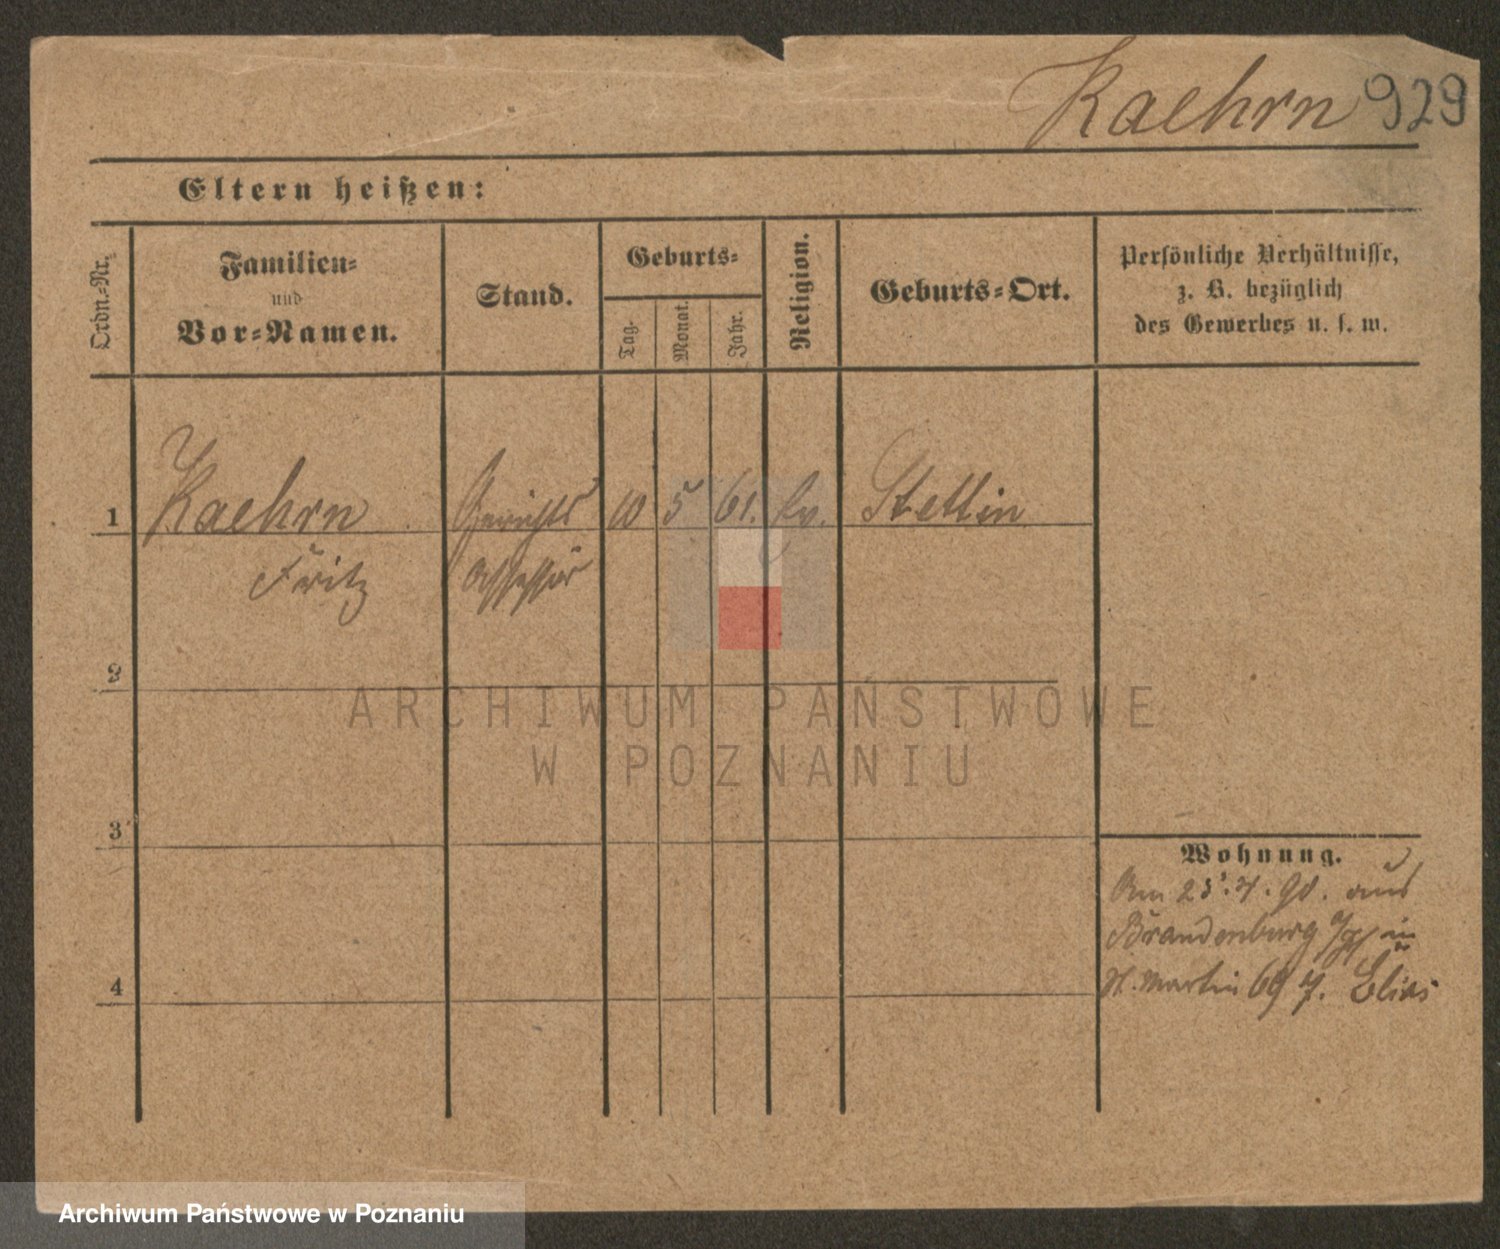 Kaehrn 929
Eltern heißen:
Ordn.-Nr.
Familien-
und
Vor-Namen.
Stand.
Geburts-
Tag.
Monat.
Jahr.
Religion.
Geburts-Ort.
Persönliche Verhältnisse,
z. B. bezüglich
des Gewerbes u. s. w.
1 Kaehrn Gerichts 10 5 61. Ev. Stettin
Fritz Assessor
2
3
4
Wohnung.
Am 25. 4. 90. aus
Brandenburg a/H in
St. Martin 69 Elias
ARCHIWUM PAŃSTWOWE
W POZNANIU
Archiwum Państwowe w Poznaniu